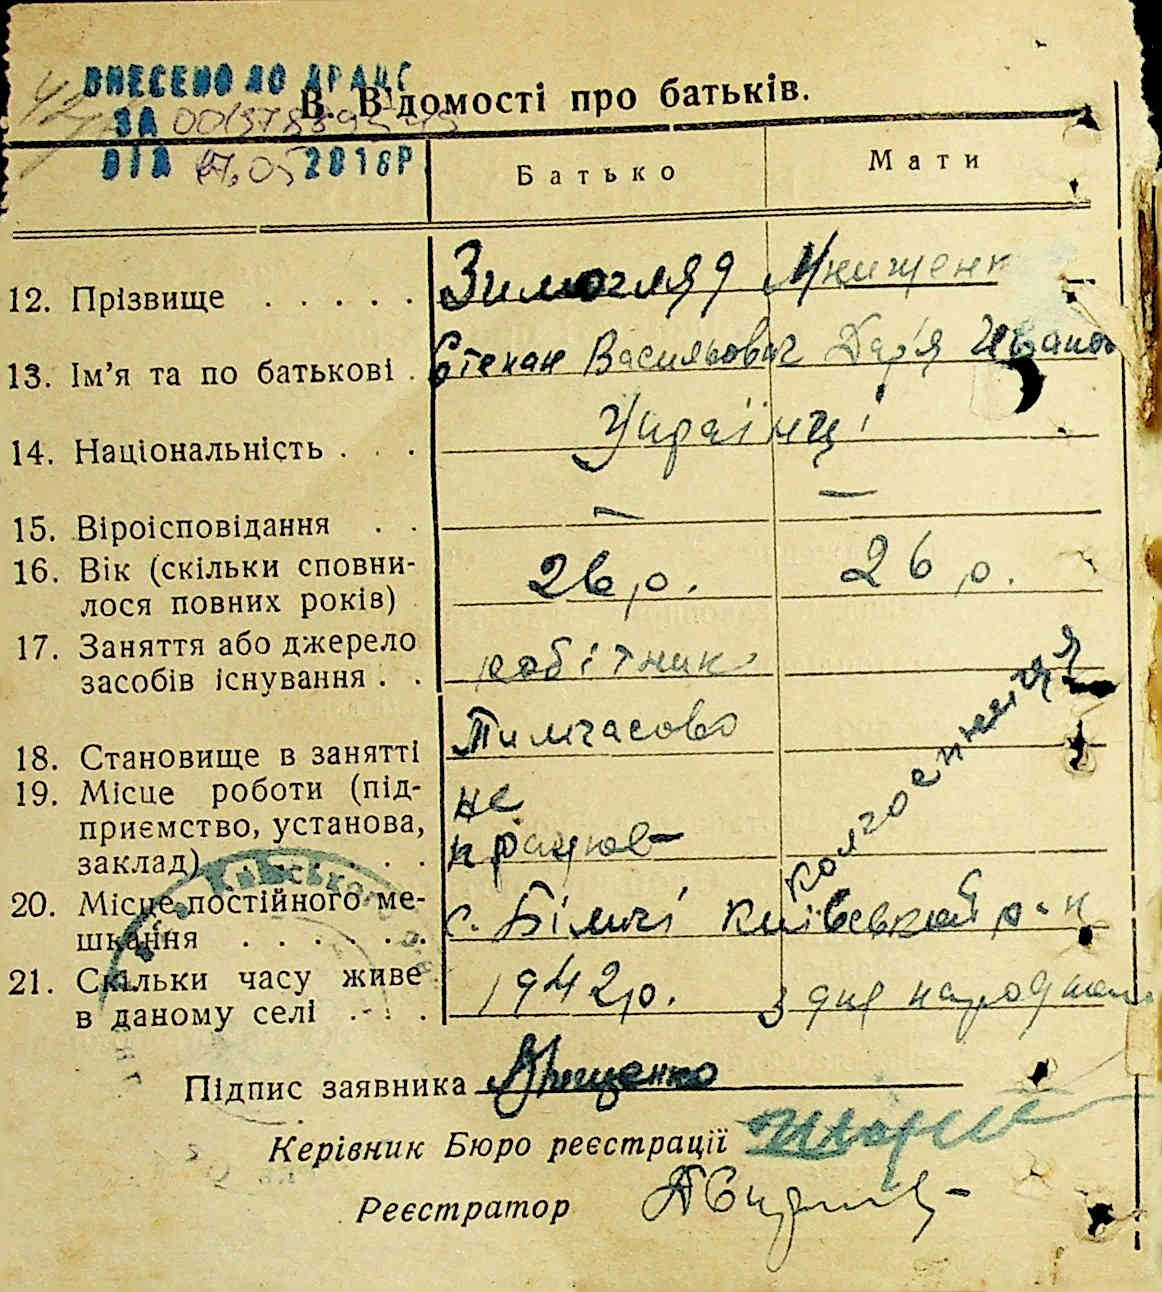 ВНЕСЕНО ДО ДРАЦС
ЗА
ВІД 17.05 2016Р
В. Відомості про батьків.
Батько Мати
12. Прізвище . . . . . Зимогляд
13. Ім'я та по батькові . Степан Васильович Дар'я Іванов
14. Національність . . . Українці
15. Віроісповідання . . — —
16. Вік (скільки сповни-
лося повних років) 26 р. 26 р.
17. Заняття або джерело
засобів існування . . робітник
колгоспниця
18. Становище в занятті Тимчасово
19. Місце роботи (під- не
приємство, установа,
заклад) . . . . . . працює
20. Місце постійного ме-
шкання . . . . . . с. Біличі Київський р-н
21. Скільки часу живе
в даному селі . . . . 1942 р. з дня народжен
Підпис заявника
Керівник Бюро реєстрації
Реєстратор